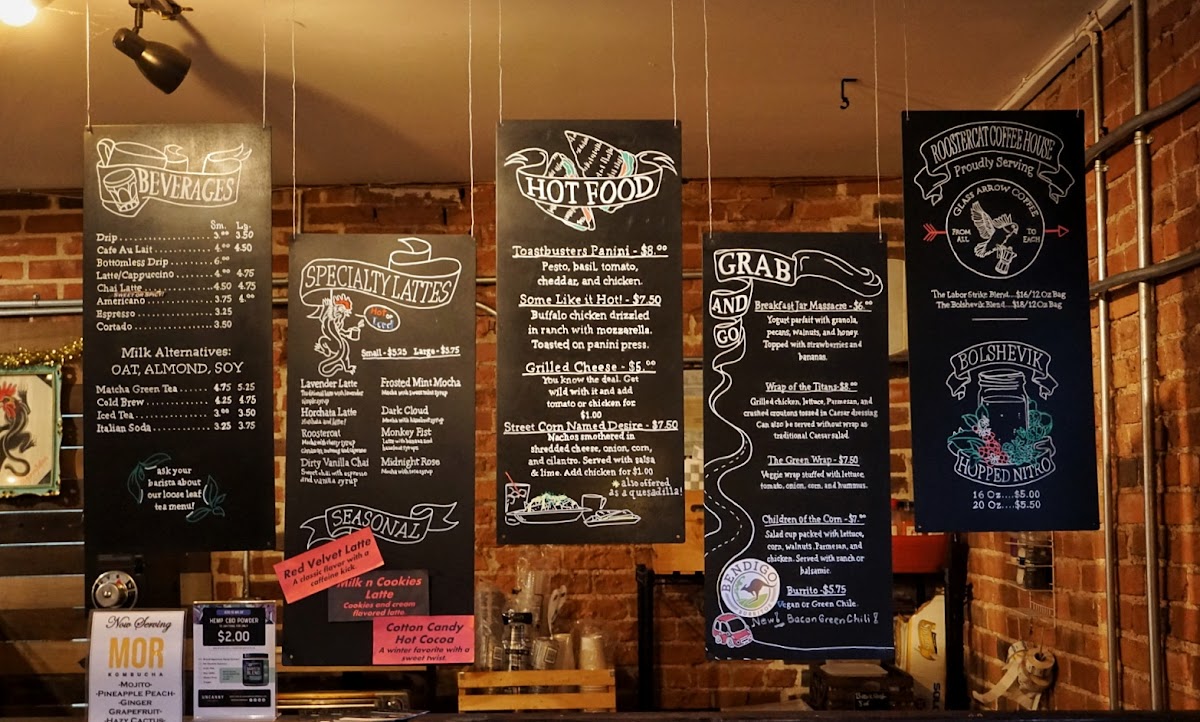 BEVERAGES
Sm. Lg.
Drip 3.00 3.50
Cafe Au Lait 4.00 4.50
Bottomless Drip 6.00
Latte/Cappuccino 4.00 4.75
Chai Latte 4.50 4.75
SWEET OR SPICY!
Americano 3.75 4.00
Espresso 3.25
Cortado 3.50
Milk Alternatives:
OAT, ALMOND, SOY
Matcha Green Tea 4.75 5.25
Cold Brew 4.25 4.75
Iced Tea 3.00 3.50
Italian Soda 3.25 3.75
ask your
barista about
our loose leaf
tea menu!
SPECIALTY LATTES
HOT or
Iced
Small - $5.25 Large - $5.75
Lavender Latte
Traditional latte with lavender
simple syrup
Horchata Latte
Horchata and latte!
Roostercat
Dirty Vanilla Chai
Sweet chai with espresso
and vanilla syrup
Frosted Mint Mocha
Dark Cloud
Monkey Fist
Latte with banana and
hazelnut syrups
Midnight Rose
Mocha with rose syrup
SEASONAL
Red Velvet Latte
A classic flavor with a
caffeine kick.
Milk n Cookies
Latte
Cookies and cream
flavored latte.
Cotton Candy
Hot Cocoa
A winter favorite with a
sweet twist.
HOT FOOD
Toastbusters Panini - $8.00
Pesto, basil, tomato,
cheddar, and chicken.
Some Like it Hot! - $7.50
Buffalo chicken drizzled
in ranch with mozzarella.
Toasted on panini press.
Grilled Cheese - $5.00
You know the deal. Get
wild with it and add
tomato or chicken for
$1.00
Street Corn Named Desire - $7.50
Nachos smothered in
shredded cheese, onion, corn,
and cilantro. Served with salsa
& lime. Add chicken for $1.00
*also offered
as a quesadilla!
GRAB
AND
GO
Breakfast Jar Massacre - $6.00
Yogurt parfait with granola,
pecans, walnuts, and honey.
Topped with strawberries and
bananas.
Wrap of the Titans-$8.00
Grilled chicken, lettuce, Parmesan, and
crushed croutons tossed in Caesar dressing
Can also be served without wrap as
traditional Caesar salad.
The Green Wrap - $7.50
Veggie wrap stuffed with lettuce,
tomato, onion, corn, and hummus.
Children of the Corn - $7.00
Salad cup packed with lettuce,
corn, walnuts, Parmesan, and
chicken. Served with ranch or
balsamic.
Burrito - $5.75
Vegan or Green Chile.
New! Bacon Green Chili!
BENDIGO
ROOSTERCAT COFFEE HOUSE
Proudly Serving
GLASS ARROW COFFEE
FROM TO
ALL EACH
The Labor Strike Blend....$16/12 Oz Bag
The Bolshevik Blend....$18/12 Oz Bag
BOLSHEVIK
HOPPED NITRO
16 Oz....$5.00
20 Oz....$5.50
Now Serving
MOR
KOMBUCHA
-MOJITO-
-PINEAPPLE PEACH-
-GINGER
GRAPEFRUIT-
-HAZY CACTUS-
HEMP CBD POWDER
$2.00